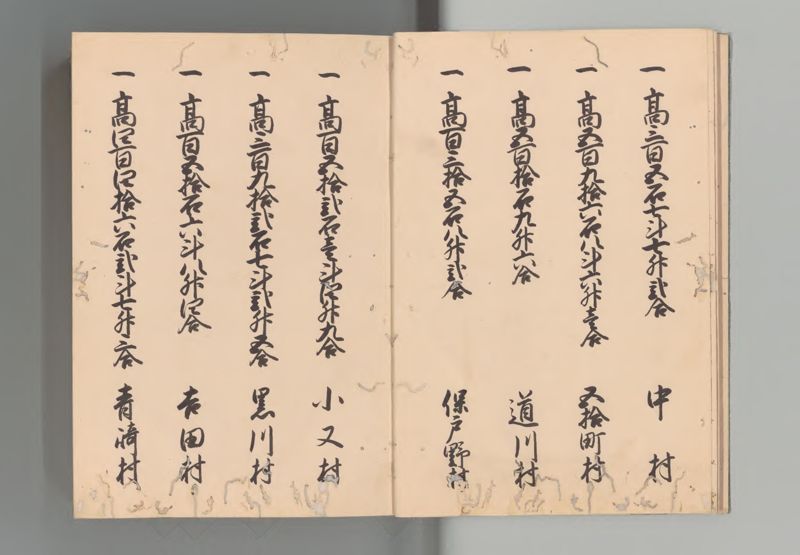 一 高三百五石七斗七升弐合 中村
一 高五百九拾六石八斗六升壱合 五拾町村
一 高五百拾石九升六合 道川村
一 高百三拾五石八升弐合 保戸野村
一 高百五拾弐石壱斗四升九合 小又村
一 高三百九拾弐石七斗弐升五合 黒川村
一 高百五拾石六斗八升四合 吉田村
一 高四百四拾六石弐斗七升六合 青崎村